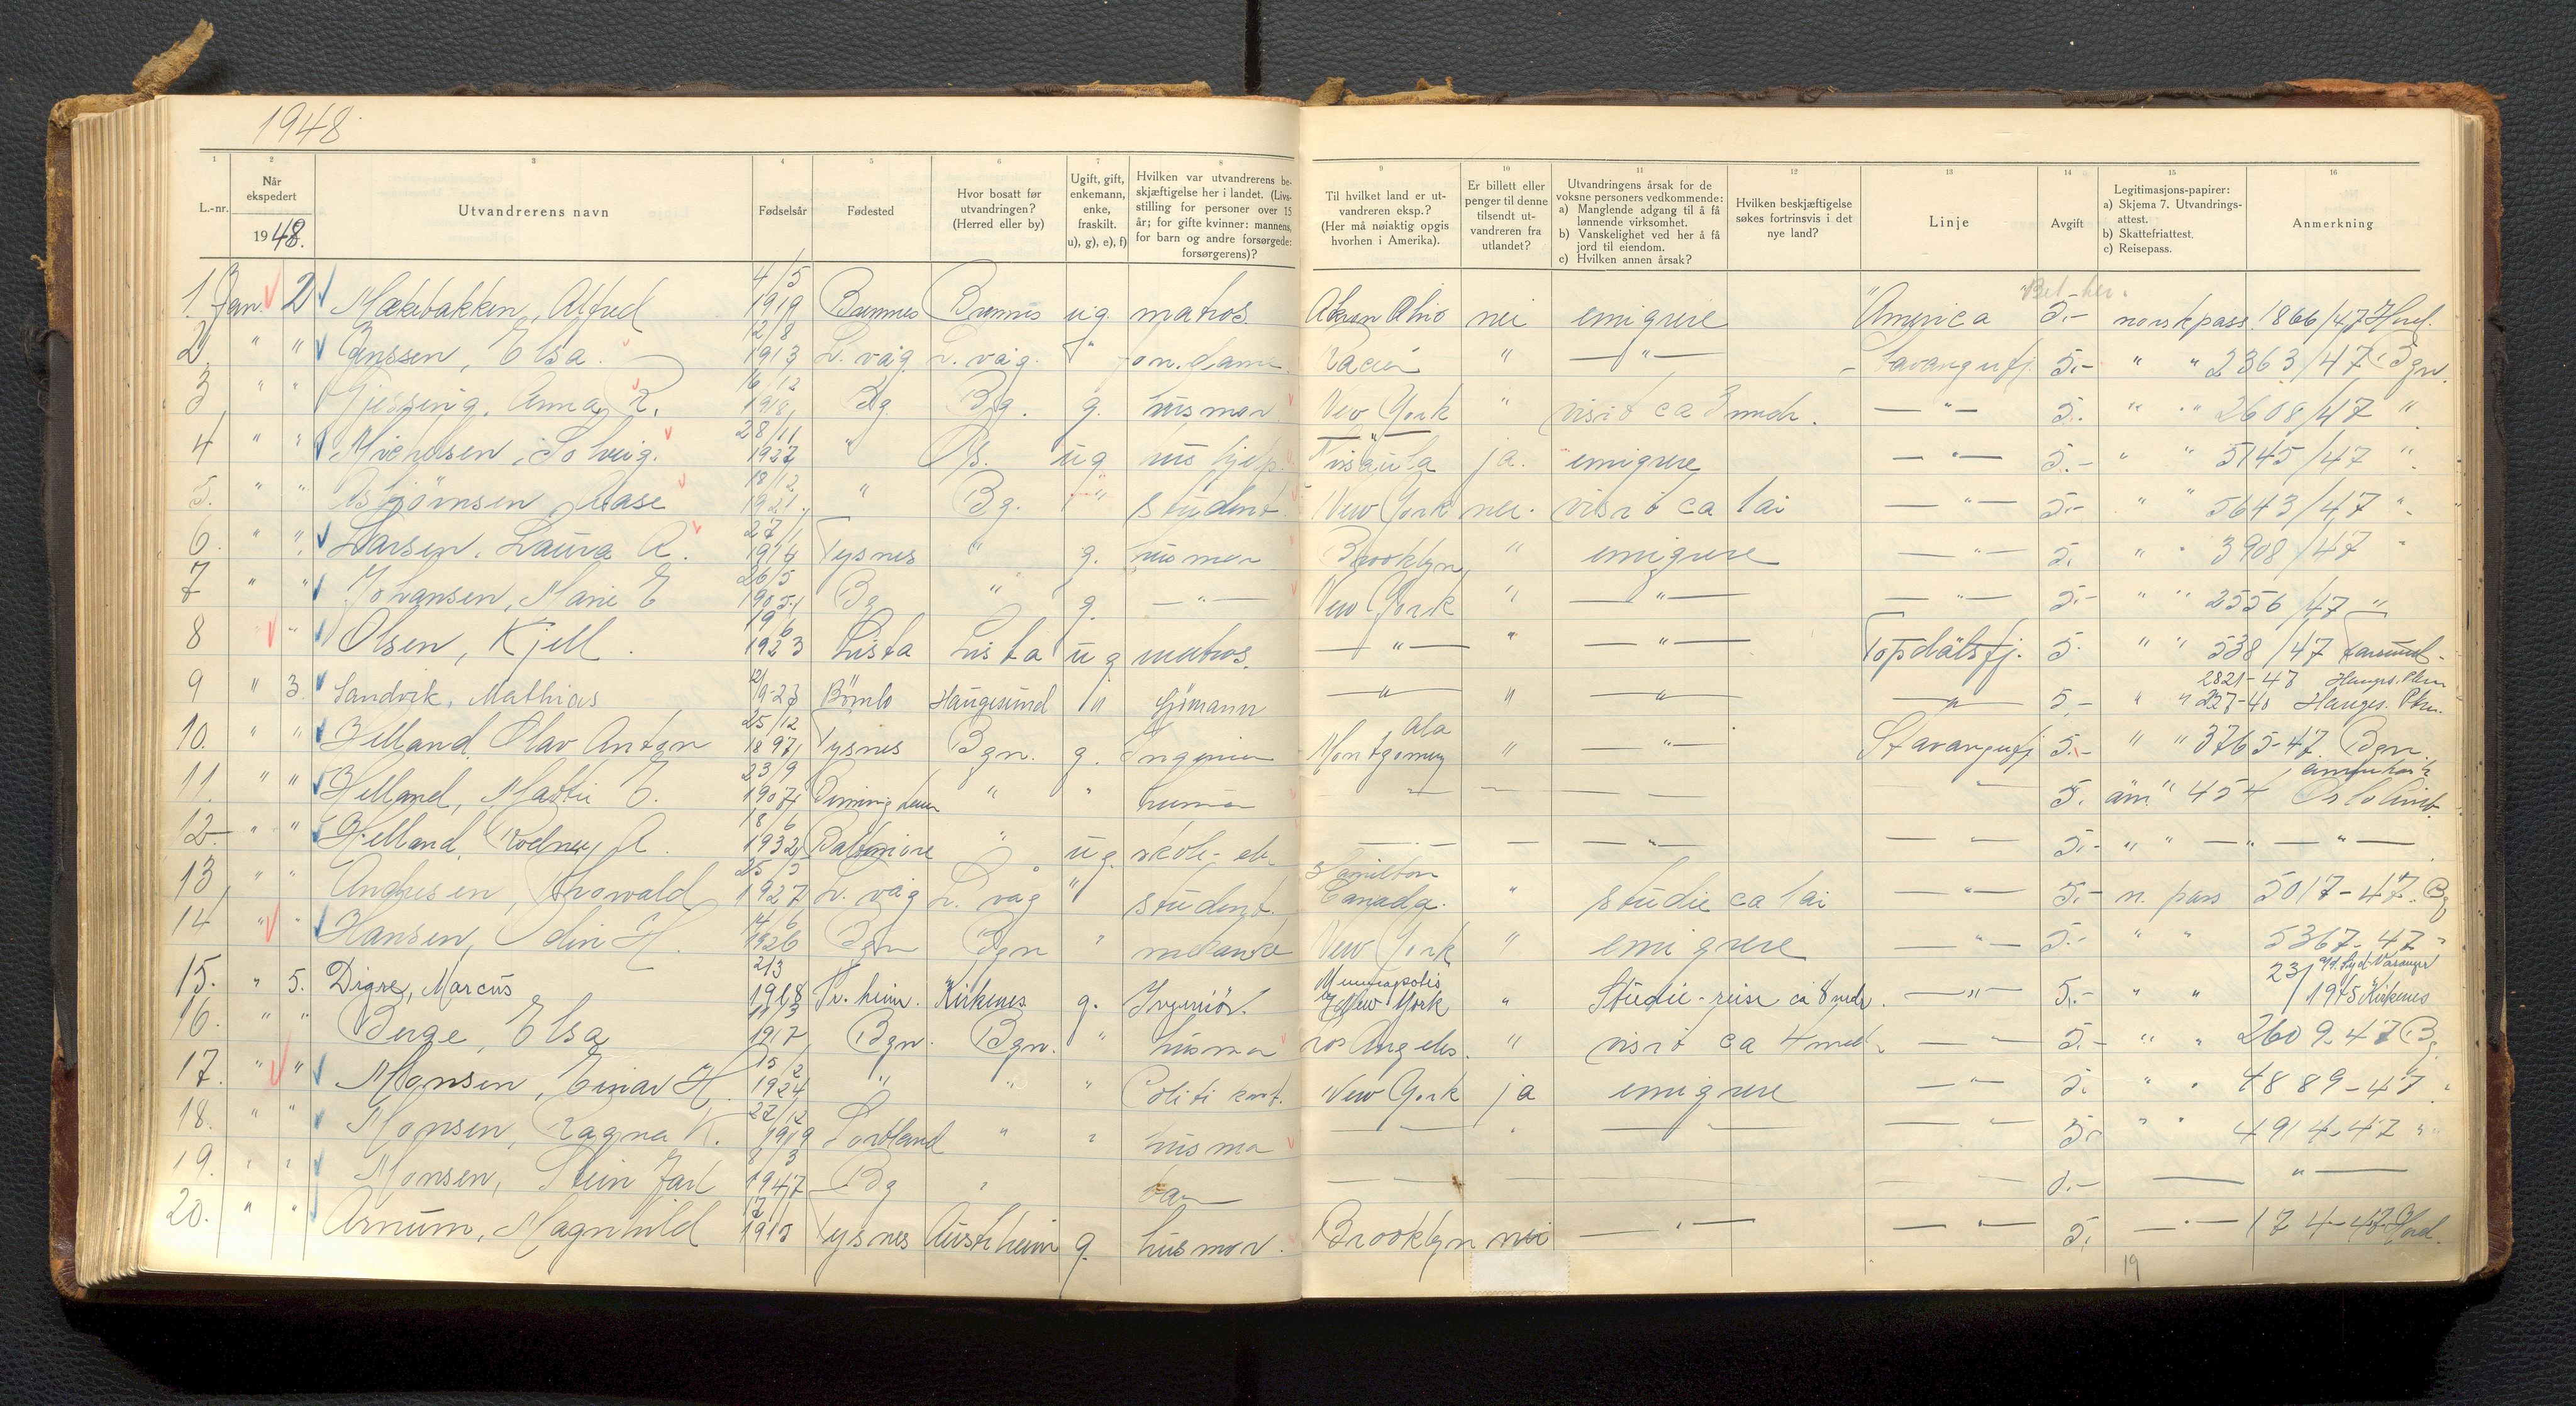 1948
1 2 3 4 5 6 7 8 9 10 11 12 13 14 15 16
L.-nr.
Når ekspedert 1948.
Utvandrerens navn
Fødselsår
Fødested
Hvor bosatt før utvandringen? (Herred eller by)
Ugift, gift, enkemann, enke, fraskilt. u), g), e), f)
Hvilken var utvandrerens beskjæftigelse her i landet. (Livsstilling for personer over 15 år; for gifte kvinner: mannens, for barn og andre forsørgede: forsørgerens)?
Til hvilket land er utvandreren eksp.? (Her må nøiaktig opgis hvorhen i Amerika).
Er billett eller penger til denne tilsendt utvandreren fra utlandet?
Utvandringens årsak for de voksne personers vedkommende: a) Manglende adgang til å få lønnende virksomhet. b) Vanskelighet ved her å få jord til eiendom. c) Hvilken annen årsak?
Hvilken beskjæftigelse søkes fortrinsvis i det nye land?
Linje
Avgift
Legitimasjons-papirer: a) Skjema 7. Utvandringsattest. b) Skattefriattest. c) Reisepass.
Anmerkning
1. Jan. 2 Mækebakken, Alfred 4/5 1919 Bremnes Bremnes ug. matros. Akron Ohio nei emigrere America 5.- norsk pass 1866/47 Hord.
2. " " Janssen, Elsa 12/8 1913 L. våg L. våg. " kon. dame " —"— Stavangerfj. 5.- " " 2363/47 Bgn.
3 " " Gjessing, Anna R. 16/12 1918 Bg Bg. g. husmor New York " visit ca 3 mdr. —"— 5.- " " 2608/47 "
4 " " Michelsen, Solveig. 28/11 1927 " Os. ug hus hjelp —"— ja. emigrere —"— 5.- " " 5145/47 "
5. " " Asbjörnsen, Aase 18/12 1921 " Bg. " student New York nei. visit ca 1 ai —"— 5.- " " 5643/47 "
6. " " Larsen, Laura A. 27/1 1914 Tysnes " g. husmor Brooklyn " emigrere —"— 5. " " 3908/47 "
7 " " Johansen, Marie E 26/5 1905 Bg " g. —"— New York " —"— —"— 5.- " " 2556/47 "
8 " Olsen, Kjell. 19/6 1923 Lista Lista ug matros. —"— " —"— Topdalsfj. 5. " " 538/47 Farsund
9 " 3. Sandvik, Mathias 1923 Bömlo Haugesund " Sjömann —"— " —"— —"— 5.- " " 227-48 Hauges. Pkm.
2821-47 Hauges. Pkm
10. " " Helland, Olav Anton 25/12 1897 Tysnes Bgn. g. Ingeniör Montgomery Ala " —"— Stavangerfj 5.- " " 3765-47 Bgn.
11. " " Helland, Mattie E. 23/9 1907 Birmingham " " husmor — " — — " 5. am. " 454 Oslo
12- " " Helland, Rodney A. 18/6 1932 Baltimore " ug. skole-elev —"— — —"— —"— 5.- " " —"—"—
13 " " Andresen, Thorvald 25/5 1927 L. våg L. våg " student. Hamilton Canada. " studie ca 1 ai —"— 5.- n. pass 5017-47. Bg
14 " " Hansen, Odin H. 1926 Bgn Bgn " mekaniker New York " emigrere —"— 5.- " " 5367-47 "
15. " 5. Digre, Marcus 21/3 1918 Tr. heim. Kirkenes g. Ingeniör. Minneapolis & New York " Studie-reise ca 8 mdr. —"— 5.- " " 231/1945 Kirkenes
16. " " Berge, Elsa 1917 Bgn. Bgn. " husmor Los Angeles. " visit ca 4 mdr. —"— 5.- " " 2609-47 Bg
17. " " Monsen, Einar H. 15/2 1924 " " " Politi konst. New York ja emigrere —"— 5. " " 4889-47 "
18. " " Monsen, Ragna K. 27/12 1919 Sortland " " husmor —"— " —"— —"— 5.- " " 4914-47 "
19. " " Monsen, Stein Jarl 8/3 1947 Bg " barn — — — — —.- — " —
20. " " Arnum, Magnhild 1913 Tysnes Austrheim g. husmor. Brooklyn nei —"— —"— 5. —"— 174-47 Hord.
19